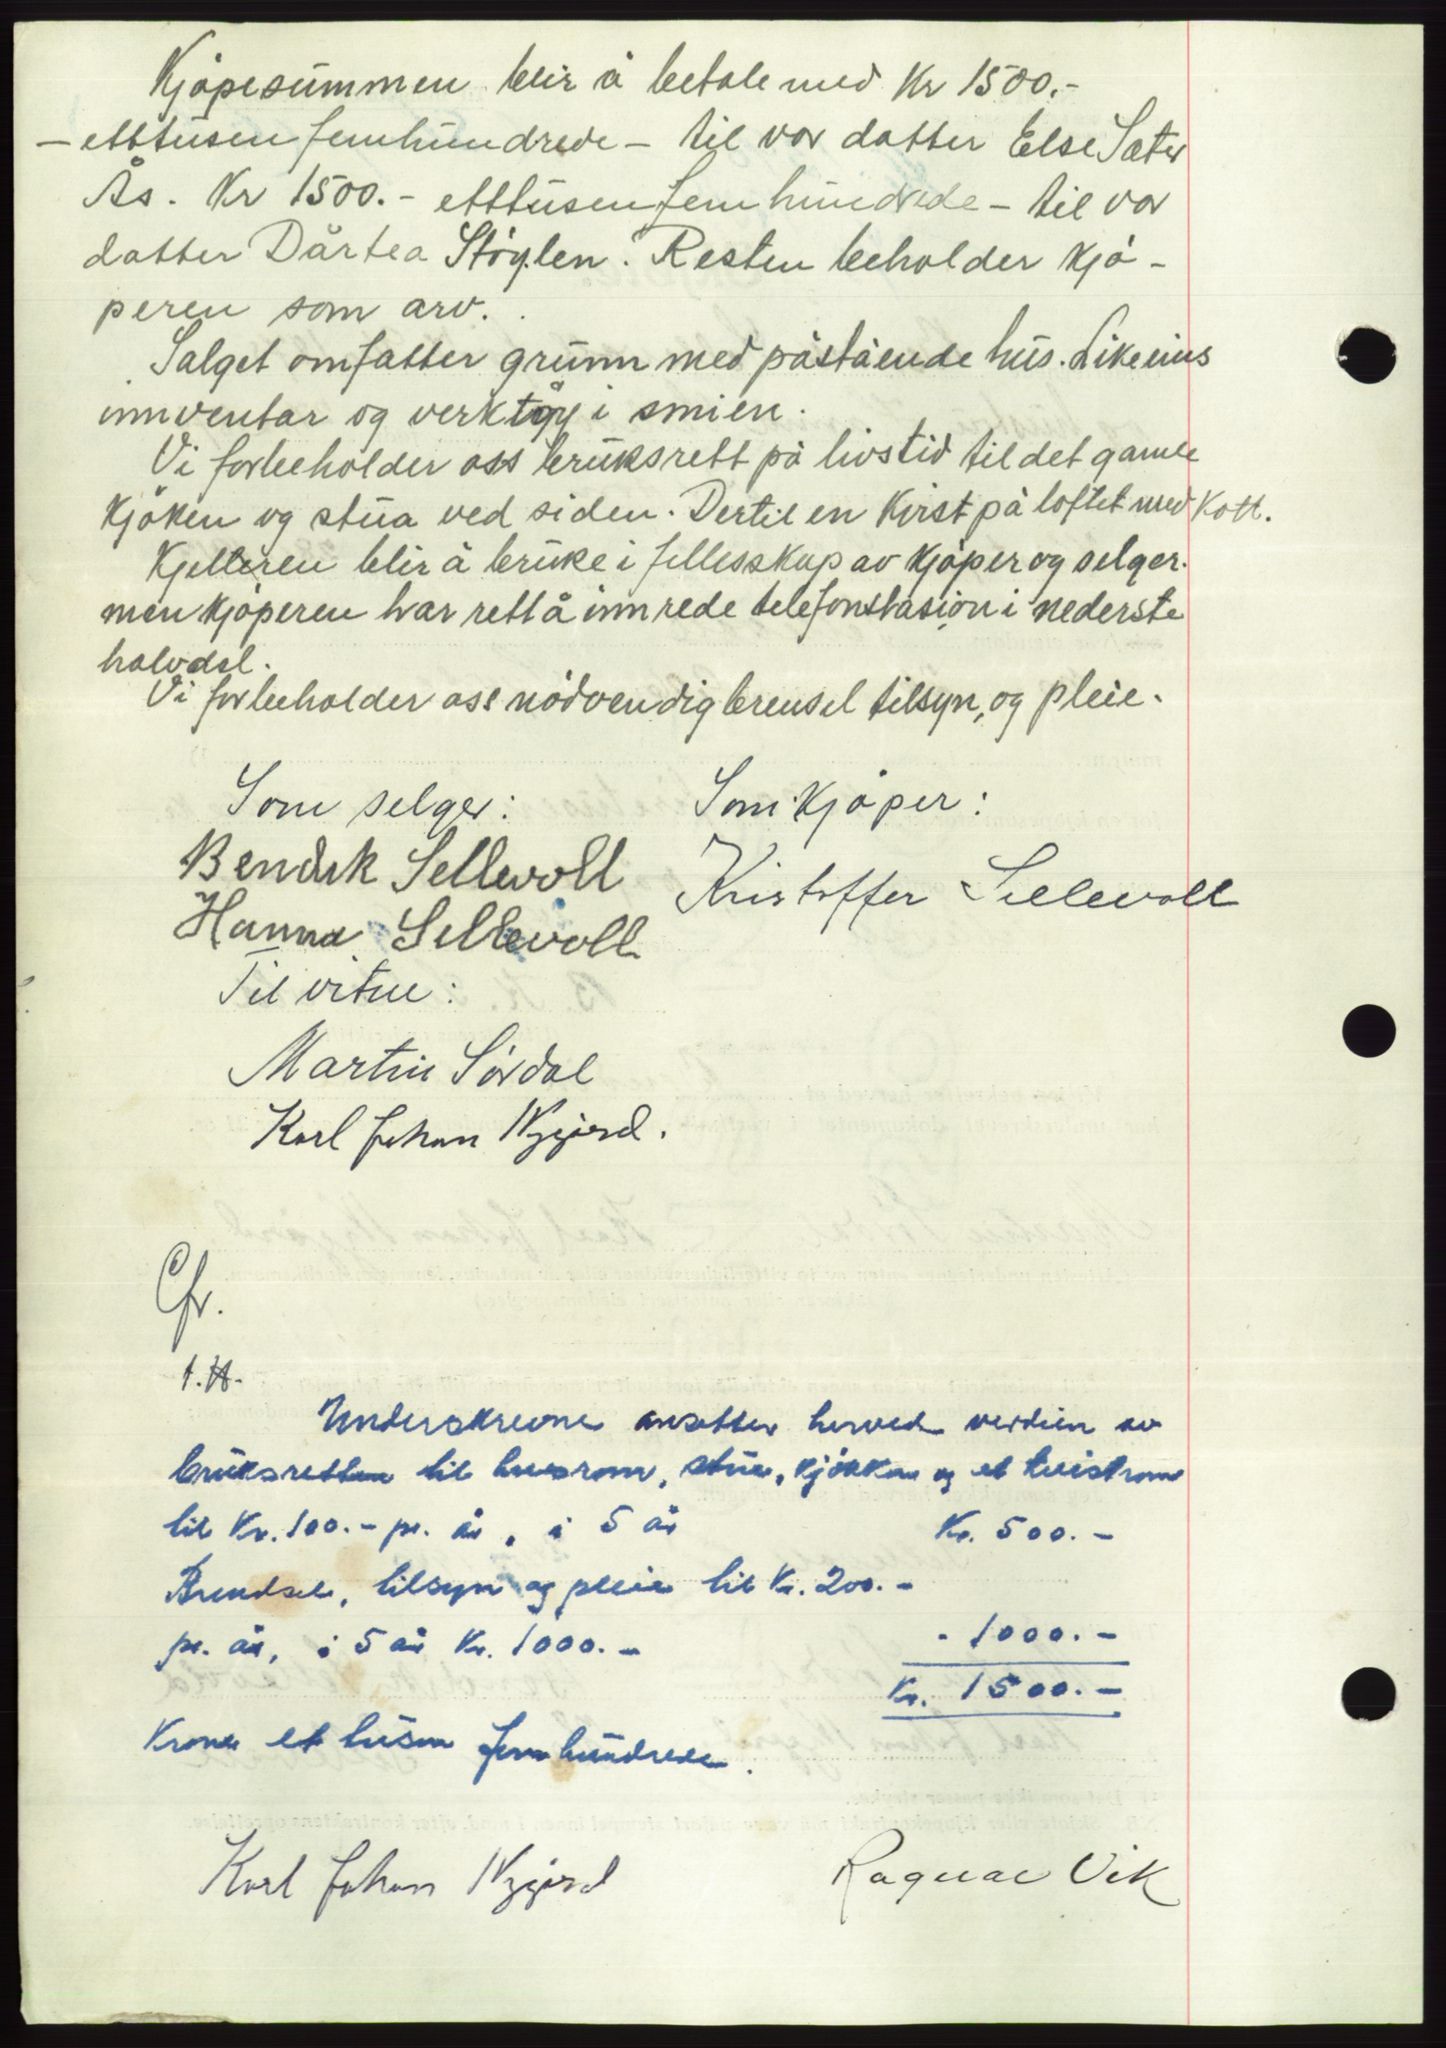 Kjøpesummen blir å betale med Kr 1500.-
- ettusen femhundrede - til vor datter Else Sæter
Ås. Kr 1500.- ettusen fem hundrede - til vor
datter Dårtea Støylen. Resten beholder kjø-
peren som arv.
Salget omfatter grunn med påstående hus. Likeens
innventar og verktøy i smien.
Vi forbeholder oss bruksrett på livstid til det gamle
kjøken og stua ved siden. Dertil en Kvist på loftet med Kott.
Kjelleren blir å bruke i fellesskap av kjøper og selger.
men kjøperen har rett å innrede telefonstasjon i nederste
halvdel.
Vi forbeholder oss nødvendig brensel tilsyn, og pleie.
Som selger: Som kjøper:
Bendik Sellevoll Kristoffer Sellevoll
Hanna Sellevoll
Til vitne:
Martin Sørdal
Karl Johan Nygjerd.
Cfr.
Underskrevne ansetter herved verdien av
bruksretten til husrom, stue, kjøkken og et kvistrom
til Kr. 100.- pr. år, i 5 år Kr. 500.-
Brendsel, tilsyn og pleie til Kr. 200.-
pr. år, i 5 år Kr. 1000.- - 1000.-
Kr. 1500.-
Kroner et tusen fem hundrede.
Karl Johan Nygjerd Ragnar Vik